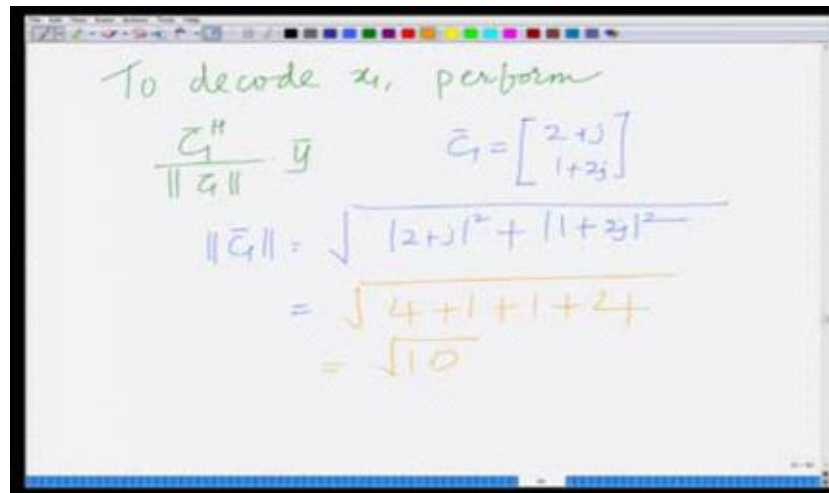 To decode x₁, perform
c̄₁ᴴ / ||c̄₁|| ȳ   c̄₁ = [2+j; 1+2j]
||c̄₁|| = √(|2+j|² + |1+2j|²)
= √(4+1+1+4)
= √10